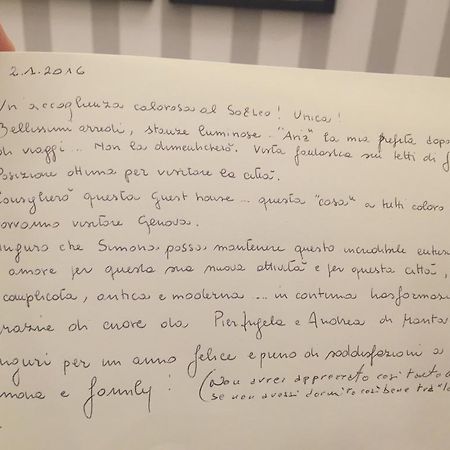 2.1.2016
Un'accoglienza calorosa al Soleo! Unica!
Bellissimi arredi, stanze luminose.. "Aria" la mia preferita dopo
di viaggi... Non la dimenticherò. Vista fantastica sui tetti di
Posizione ottima per visitare la città.
Consiglierò questa Guest house... questa "casa" a tutti coloro
vorranno visitare Genova.
Auguro che Simona possa mantenere questo incredibile
amore per questa sua nuova attività e per questa città,
complicata, antica e moderna... in continua
Grazie di cuore da Pierangela e Andrea di
Auguri per un anno felice e pieno di soddisfazioni a
Simona e family! (Non avrei apprezzato così tanto
se non avessi dormito così bene